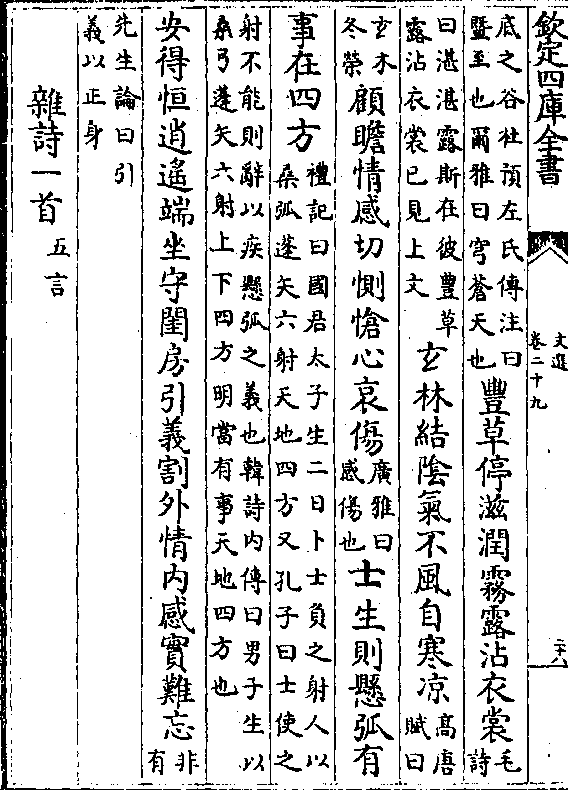 欽定四庫全書
文選
卷二十九
底之谷杜預左氏傳注曰
暨至也爾雅曰穹蒼天也
豐草停滋潤霧露沾衣裳
毛
詩
曰湛湛露斯在彼豐草
露沾衣裳已見上文
玄林結陰氣不風自寒凉
高唐
賦曰
玄木
冬榮
顧瞻情感切惻愴心哀傷
廣雅曰
感傷也
士生則懸弧有
事在四方
禮記曰國君太子生二日卜士負之射人以
桑弧蓬矢六射天地四方又孔子曰士使之
射不能則辭以疾懸弧之義也韓詩内傳曰男子生以
桑弓蓬矢六射上下四方明當有事天地四方也
安得恒逍遥端坐守閨房引義割外情内感實難忘
非
有
先生論曰引
義以正身
雜詩一首
五言